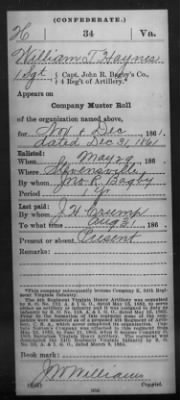 (CONFEDERATE.)
H | 34 | Va.
William T. Haynes
1 Sgt, Capt. John R. Bagby's Co.,
4 Reg't of Artillery.*
Appears on
Company Muster Roll
of the organization named above,
for Nov & Dec, 1861.
dated Dec 31, 1861
Enlisted:
When May 29, 1861.
Where Stevensville
By whom Jno R. Bagby
Period 1 yr
Last paid:
By whom J. H. Crump
To what time Aug 31, 1861.
Present or absent Present
Remarks:
*This company subsequently became Company K, 34th Regiment Virginia Infantry.
Book mark:
J W Williams
Copyist.